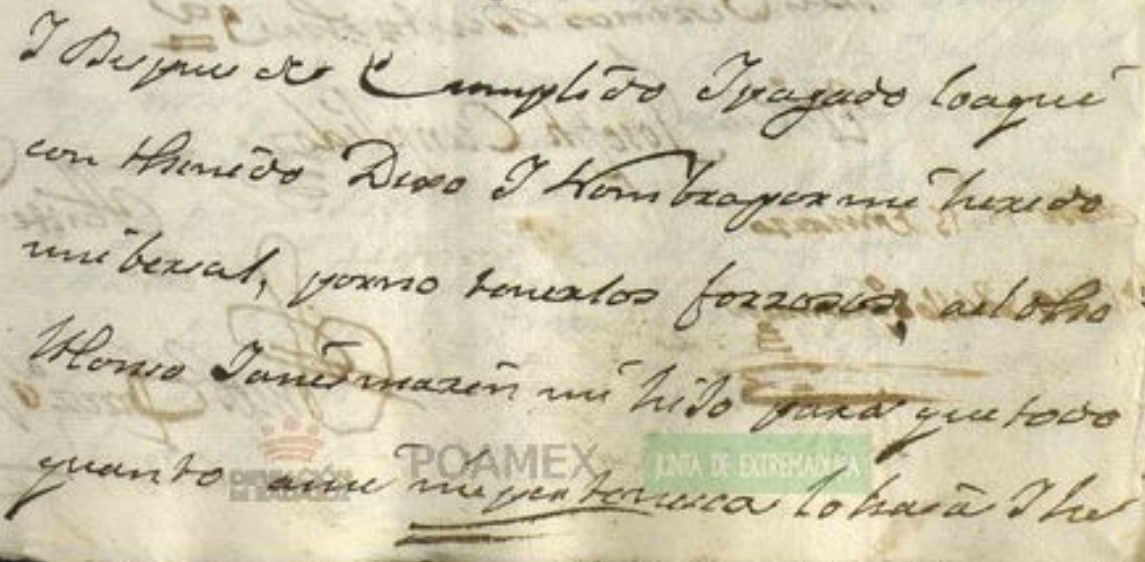 I Despues de Cumplido I pagado lo aqui
con thenido Dexo I Nombra por mi heredo
unibersal, por no tenerlos forzosos, al dho
Alonso Marin mi hijo para que todo
quanto a mi me pertenezca lo haia I he
POAMEX
JUNTA DE EXTREMADURA
DIPUTACIÓN
DE BADAJOZ